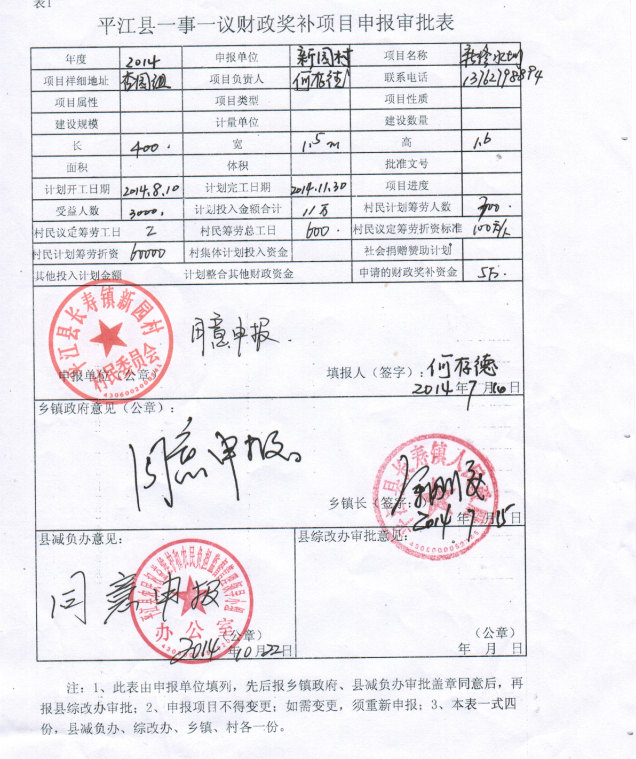 表1
平江县一事一议财政奖补项目申报审批表
年度 2014 申报单位 新园村 项目名称
项目详细地址 项目负责人 何存德 联系电话 13762798894
项目属性 项目类型 项目性质
建设规模 计量单位 建设数量
长 400. 宽 1.5m 高 1.6
面积 体积 批准文号
计划开工日期 2014.8.10 计划完工日期 2014.11.30 项目进度
受益人数 3000. 计划投入金额合计 11万 村民计划筹劳人数 300.
村民议定筹劳工日 2 村民筹劳总工日 600. 村民议定筹劳折资标准 100元/人
村民计划筹劳折资 60000 村集体计划投入资金 社会捐赠赞助计划
其他投入计划金额 计划整合其他财政资金 申请的财政奖补资金 5万.
平江县长寿镇新园村
村民委员会
同意申报.
申报单位（公章） 填报人（签字）：何存德
2014年7月10日
乡镇政府意见（公章）：
同意申报。
平江县长寿镇人民政府
乡镇长（签字）：
2014年7月15日
县减负办意见： 县综改办审批意见：
同意申报
办公室
（公章） （公章）
2014年10月22日 年 月 日
注：1、此表由申报单位填列，先后报乡镇政府、县减负办审批盖章同意后，再
报县综改办审批；2、申报项目不得变更；如需变更，须重新申报；3、本表一式四
份，县减负办、综改办、乡镇、村各一份。